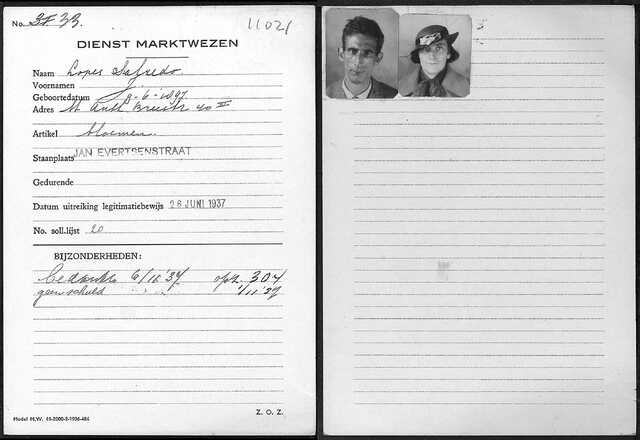 No. 37 33
11021
DIENST MARKTWEZEN
Naam Lopes Salzedo
Voornamen J.
Geboortedatum 8-6-1897
Adres St. Anth. Breestr 40 II
Artikel bloemen
Staanplaats JAN EVERTSENSTRAAT
Gedurende
Datum uitreiking legitimatiebewijs 28 JUNI 1937
No. soll.lijst 20
BIJZONDERHEDEN:
6/11 '37 304
geen schuld 1/11 37
Model M.W.
Z. O. Z.